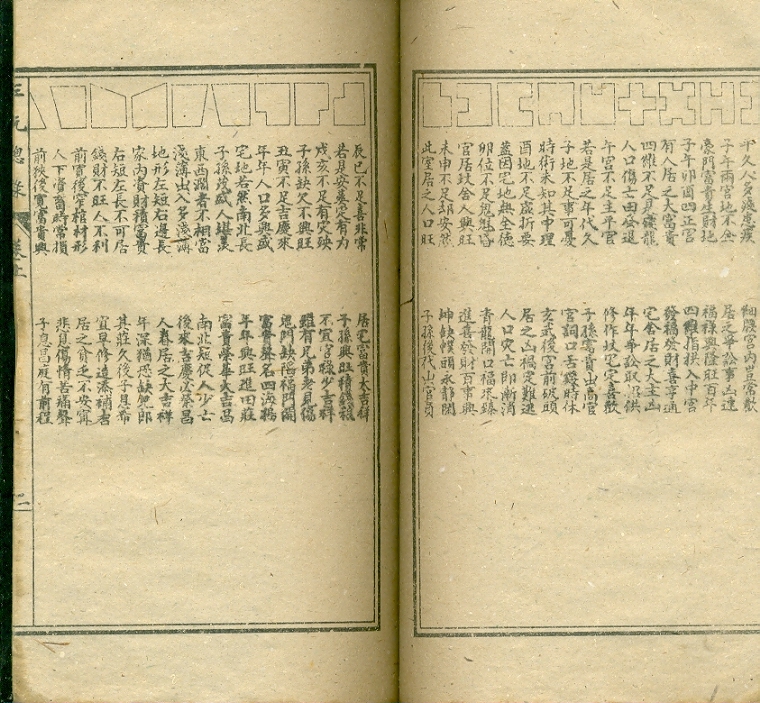 子午兩宮地不全　居之爭訟事凶連
豪門富貴生財地　福祿興隆旺百年
子午卯酉四正宮　四維指拱入中宮
有人居之大富貴　發福發財喜亨通
四維不足見　宅舍居之大主凶
人口傷亡田蚕退　年年爭訟取　供
午宮不足主平官　修作坟宅宅喜歡
若是居之年代久　子孫富貴出高官
子地不足事可憂　官詞口舌鎮時休
時術未知其中理　玄武後宮前破頭
酉地不足盛折要　居之凶禍定難逃
蓋因宅地無全德　人口灾亡即漸消
卯位不足　青龍開口福來臻
官居坟舍人興旺　進喜發財百事興
未申不足却安然　坤缺幞頭永龍關
此室居之人口旺　子孫後代出官員
辰巳不足喜非常　居宅富貴大吉祥
若是安墓定有力　子孫興旺積錢糧
戌亥不足有灾殃　不宜宮錄少吉祥
子孫缺欠不興旺　雖有兄弟老見傷
丑寅不足吉慶來　鬼門缺陷福門開
年年人口多興盛　富貴聲名四海鵲
宅地若然南北長　年年興旺進田莊
子孫　盛人堪羨　富貴榮華大吉昌
東西濶者不相當　南北短促人少亡
淺薄出入多淺薄　後來吉慶必榮昌
地形左短右邊長　人眷居之大吉祥
家內資財積富貴　年深猶恐缺兒郎
右短左長不可居　其莊久後子息希
錢財不旺人不利　宜早修造添補吉
前寬後窄棺材形　居之貧乏不安寧
人下資畜時常損　悲哀傷情苦痛聲
前狹後寬富貴興　子息昌旺有前程
三元總錄　卷上　二